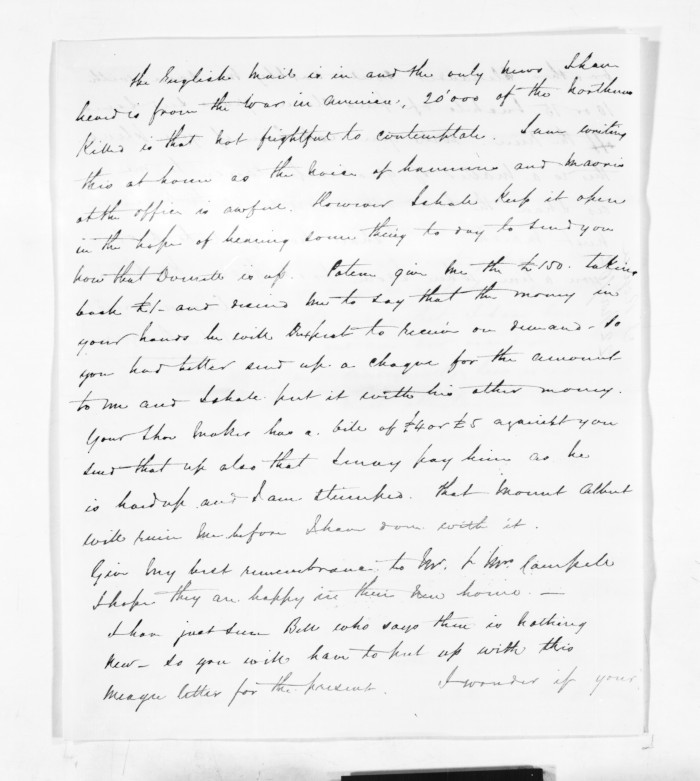 the English Mail is in and the only news I have
heard is from the War in America, 20'000 of the northerns
Killed is that not frightful to contemplate. I am writing
this at home as the noise of hammering and maoris
at the office is awful. However I shall Keep it open
in the hope of hearing some thing to day to send you
now that Donald is up. give me the £150. taking
back £1 - and desired me to say that the money in
your hands he will expect to receive on demand - so
you had better send up a cheque for the amount
to me and I shall put it with his other money.
Your Shoe Maker has a bill of £4 or £5 against you
send that up also that I may pay him as he
is hard up and I am stumped. that Mount Albert
will ruin me before I have done with it.
Give My best remembrance to Mr. & Mrs Campbell
I hope they are happy in their new home. -
I have just seen Bell who says there is nothing
new - so you will have to put up with this
meagre letter for the present. I wonder if your